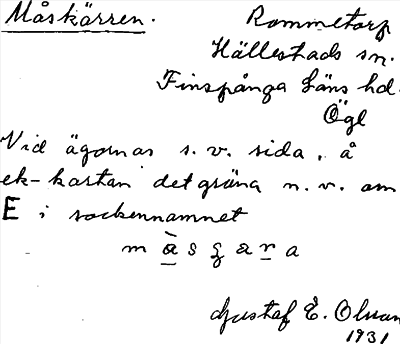 Måskärren.
Rommetorp
Hällestads sn.
Finspånga Läns hd.
Ögl
Vid ägornas s.v. sida, å
ek-kartan det gröna n.v. om
E i sockennamnet
m à s g a r a
Gustaf E. Olsson
1931